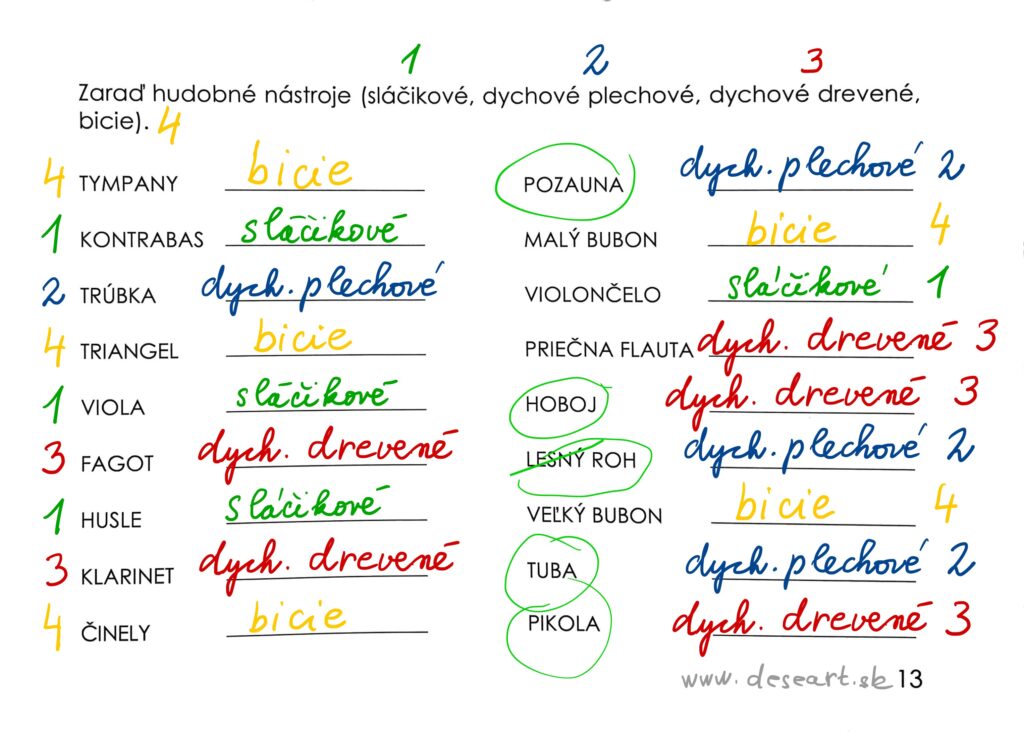 1 2 3
Zaraď hudobné nástroje (sláčikové, dychové plechové, dychové drevené,
bicie). 4
4 TYMPANY bicie
1 KONTRABAS sláčikové
2 TRÚBKA dych. plechové
4 TRIANGEL bicie
1 VIOLA sláčikové
3 FAGOT dych. drevené
1 HUSLE sláčikové
3 KLARINET dych. drevené
4 ČINELY bicie
POZAUNA dych. plechové 2
MALÝ BUBON bicie 4
VIOLONČELO sláčikové 1
PRIEČNA FLAUTA dych. drevené 3
HOBOJ dych. drevené 3
LESNÝ ROH dych. plechové 2
VEĽKÝ BUBON bicie 4
TUBA dych. plechové 2
PIKOLA dych. drevené 3
www.deseart.sk 13